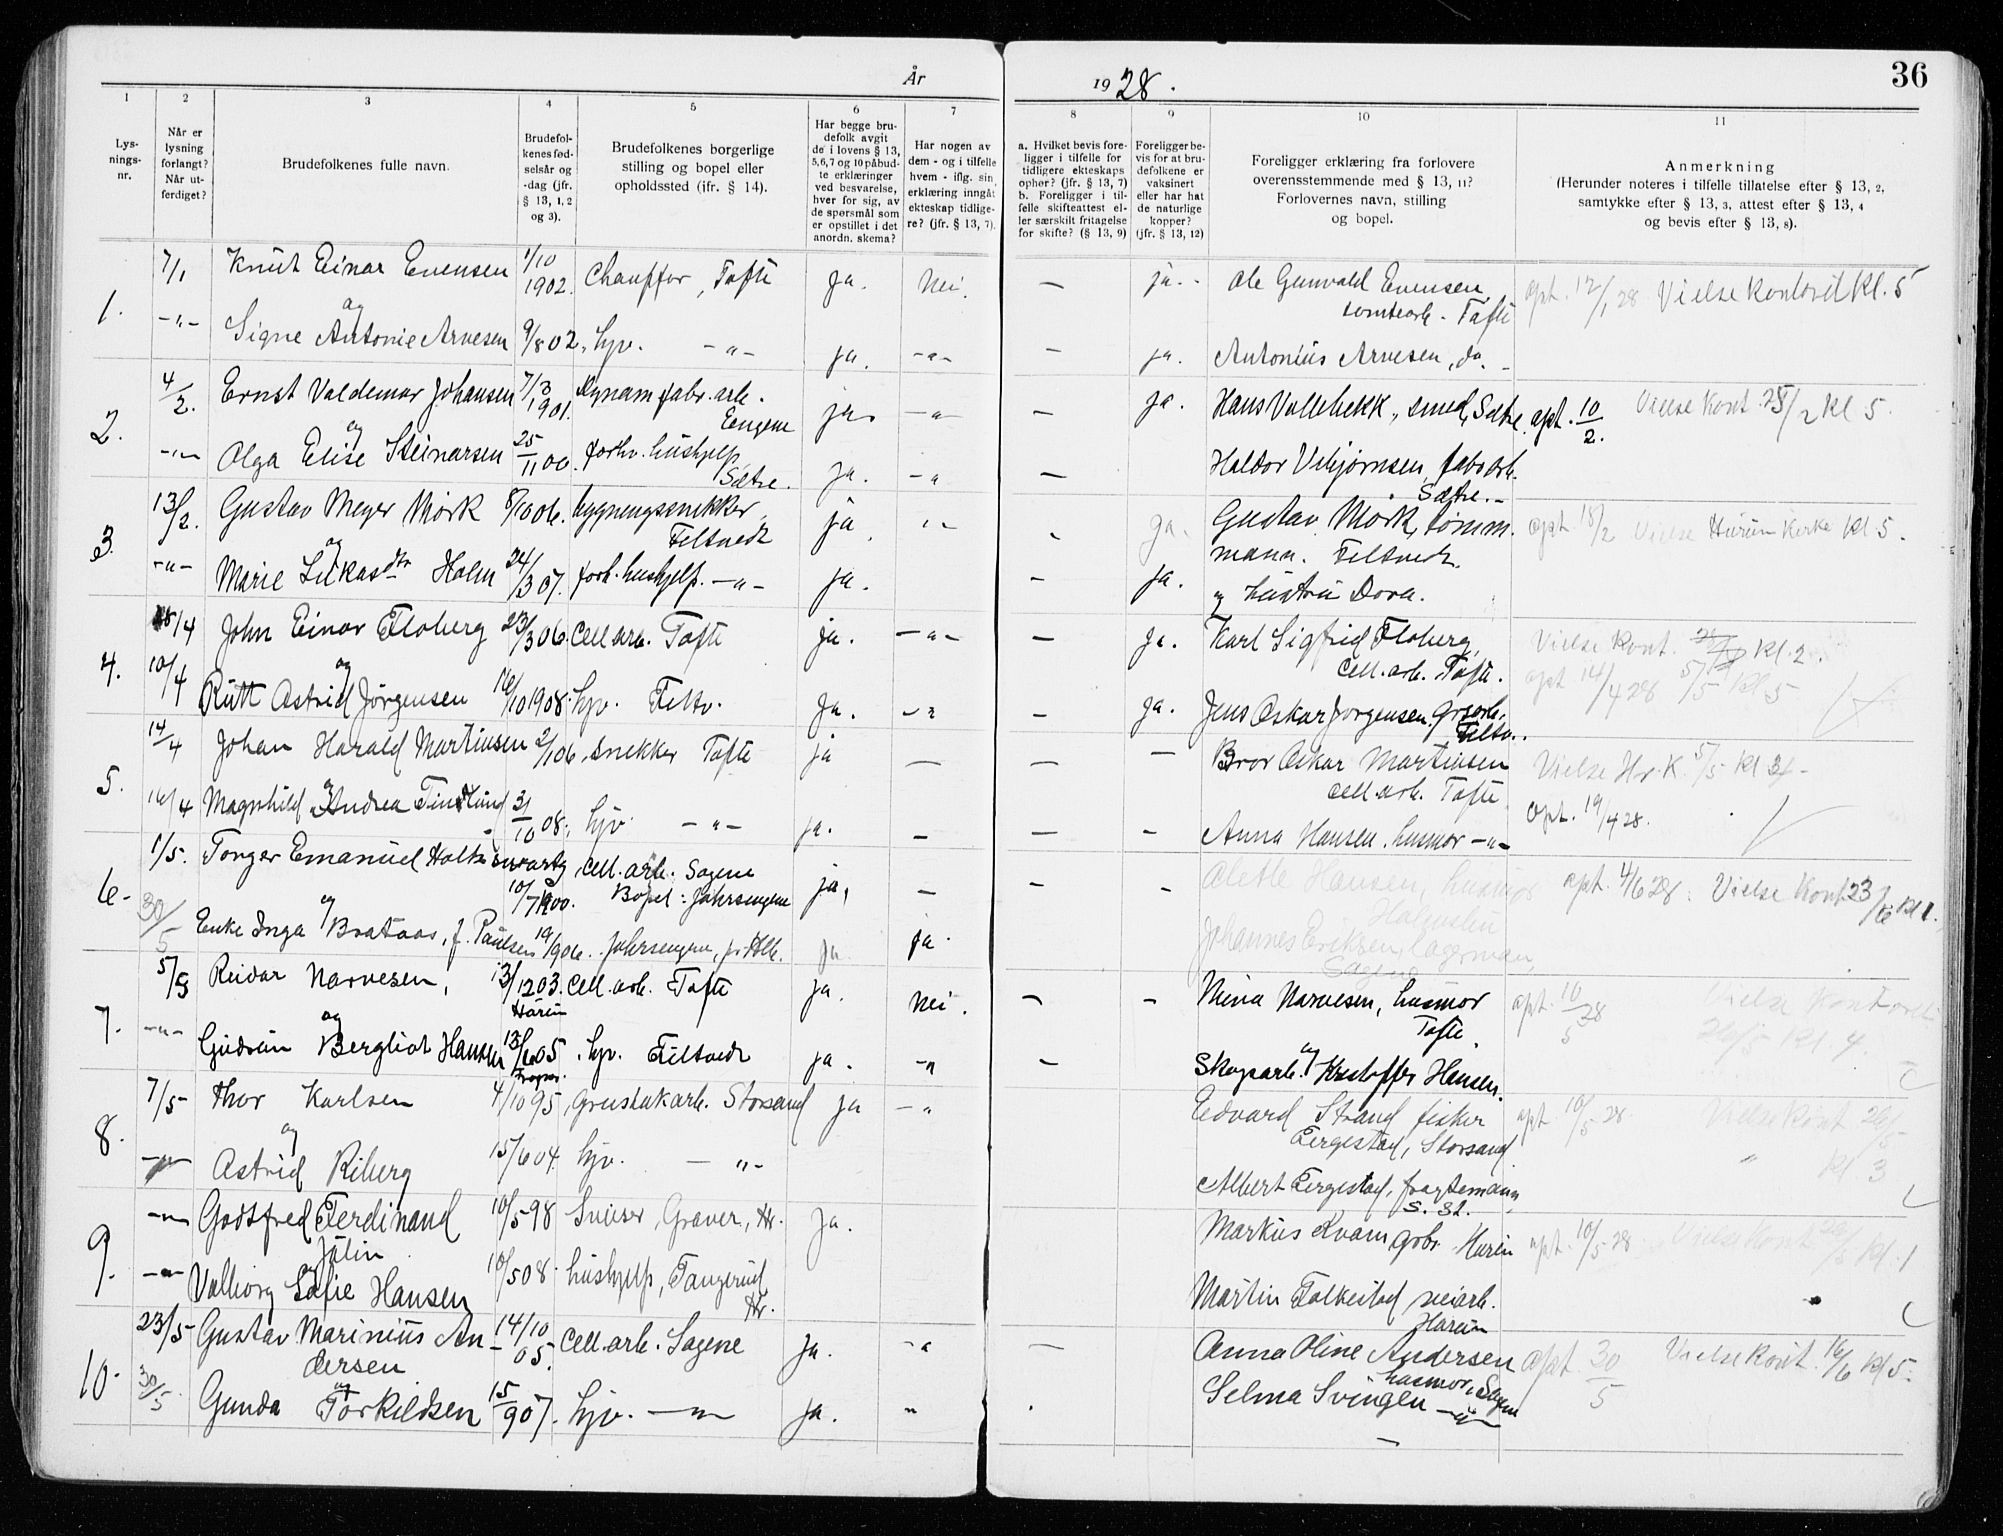 År 1928.
36
1 2 3 4 5 6 7 8 9 10 11
Lys-
nings-
nr.
Når er
lysning
forlangt?
Når ut-
ferdiget?
Brudefolkenes fulle navn.
Brudefol-
kenes fød-
selsår og
-dag (jfr.
§ 13, 1, 2
og 3).
Brudefolkenes borgerlige
stilling og bopel eller
opholdssted (ifr. § 14).
Har begge bru-
defolk avgit
de i lovens § 13,
5,6,7 og 10 påbud-
te erklæringer
ved besvarelse,
hver for sig, av
de spørsmål som
er opstillet i det
anordn. skema?
Har nogen av
dem - og i tilfelle
hvem - iflg. sin
erklæring inngåt
ekteskap tidlige-
re? (jfr. § 13, 7).
a. Hvilket bevis fore-
ligger i tilfelle for
tidligere ekteskaps
ophør? (jfr. § 13, 7)
b. Foreligger i til-
felle skifteattest el-
ler særskilt fritagelse
for skifte? (§ 13, 9)
Foreligger be-
vis for at bru-
defolkene er
vaksinert
eller har hat
de naturlige
kopper?
(jfr. § 13, 12)
Foreligger erklæring fra forlovere
overensstemmende med § 13, 11?
Forlovernes navn, stilling
og bopel.
Anmerkning
(Herunder noteres i tilfelle tillatelse efter § 13, 2,
samtykke efter § 13, 3, attest efter § 13, 4
og bevis efter § 13, 8).
1. 7/1 Knut Einar Evensen 1/10 1902. Chauffør, Tofte ja. Nei. — ja. Ole Gunvald Evensen,
tomtearb. Tofte
opt. 12/1 28 Vielse kontoret kl. 5
og
-"- Signe Antonie Arvesen 9/8 02, hjv. -"- ja. -"- — ja. Antonius Arvesen, do.
2. 4/2. Ernst Valdemar Johansen 7/3 1901. Dynamfabr. arb. Engene ja -"- — ja. Hans Vallebekk, smed, Sætre. opt. 10/2. Vielse Kont. 25/2 kl 5
og
-"- Olga Elise Steinarsen 25/11 00. forhv. hushjelp, Sætre. ja. -"- — Haldor Vebjørnsen, fabr.arb.
Sætre.
3. 13/2. Gustav Meyer Mørk 8/10 06. bygningssnekker, Filtvedt ja. -"- ja. Gustav Mørk, tømm.
mann. Filtvedt.
opt 18/2 Vielse Hurum Kirke kl 5.
og
-"- Marie Lukasdtr Holm 24/3 07. forh. hushjelp. -"- ja. — ja. og hustru Dora.
4. 8/4 John Einar Floberg 23/3 06. Cell.arb. Tofte ja. -"- — ja. Karl Sigfrid Floberg,
Cell.arb. Tofte.
Vielse kont. kl. 2.
opt 14/4 28 5/5 kl 5
og
10/4 Rutt Astrid Jørgensen 16/10 1908. hjv. Filtv. ja. -"- — ja. Jens Oskar Jørgensen. Filtv.
5. 14/4 Johan Harald Martinsen 2/1 06, snekker Tofte ja — — — Bror Oskar Martinsen
Cell.arb. Tofte
Vielse Hr. K. 5/5 kl
og
16/4 Magnhild Andrea 31/10 08, hjv. -"- ja. — — - Anna Hansen, husmor -"-
opt. 19/4 28.
6. 1/5. Torger Emanuel 10/7 1900. Cell.arb. Sagene
Bopel:
ja, — — - Alette Hansen, husmor
opt. 4/6 28. Vielse Kont. 23/6 kl 1.
og
30/5 Enke Inga Brataas, f. Paulsen 19/9 06. ja ja. Johannes Eriksen, lagerman,
Sagene
7. 5/5 Reidar Narvesen, 13/12 03. Hurum Cell.arb. Tofte ja. Nei. — - Mina Narvesen, husmor
Tofte.
opt. 10/5 28 Vielse Kontoret
26/5 kl. 4.
og
-"- Gudrun Bergliot Hansen 13/6 05. hjv. Filtvedt ja. -"- — Skogsarb. Kristoffer Hansen.
8. 7/5- Thor Karlsen 4/10 95, Grustakarb. Storsand ja -"- Edvard Strand fisker
Ergestad, Storsand
opt. 10/5 28 Vielse Kont 26/5
kl 3
og
-"- Astrid Riberg 15/6 04 hjv. -"- Albert Ergestad, fragtemann,
S. st.
9. -"- Godtfred Ferdinand
Julin
10/5 98 Sveiser, Graver, Hr. ja. Markus Kvam Hurum opt. 10/5 28 Vielse Kont kl 1
og
-"- Valborg Sofie Hansen 10/5 08. hushjelp, Tangerud, Hr. Martin Folkestad veiarb.
Hurum
10. 23/5 Gustav Marinius An-
dersen
14/10 05. Cell.arb. Sagene ja. -"- — Anna Oline Andersen
husmor, Sagene
opt. 30/5 Vielse Kont. 16/6 kl 5.
og
30/5 Gunda Torkildsen 15/9 07. hjv. -"- ja. " Selma Svingen -"-